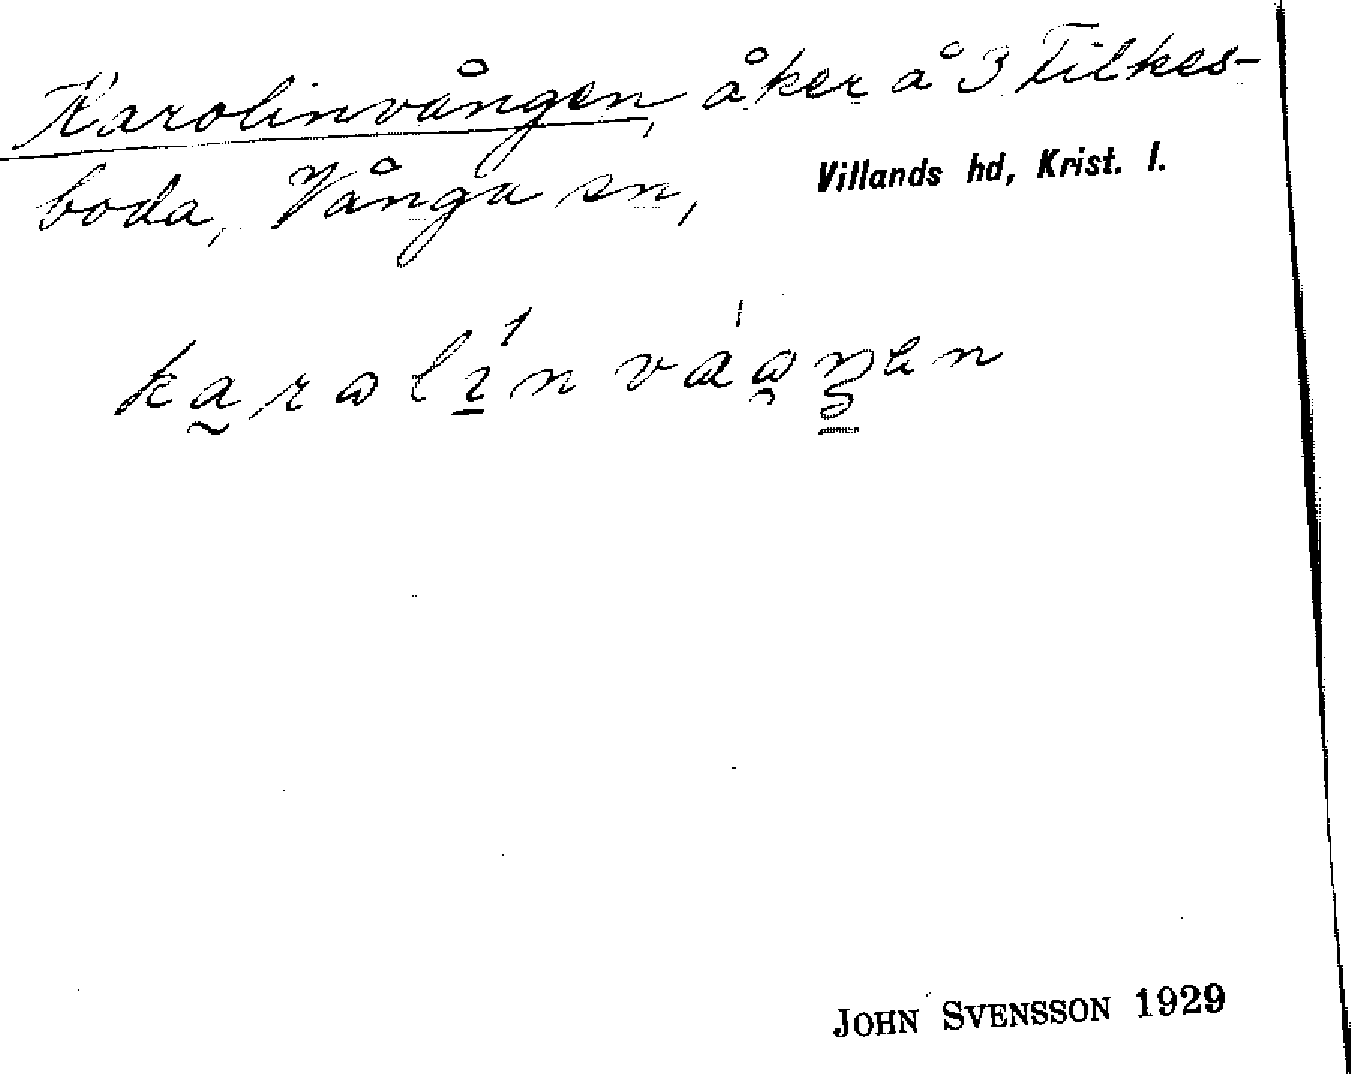 Karolinvången, åker å 3 Tilkes-
boda, Vånga sn, Villands hd, Krist. l.
JOHN SVENSSON 1929